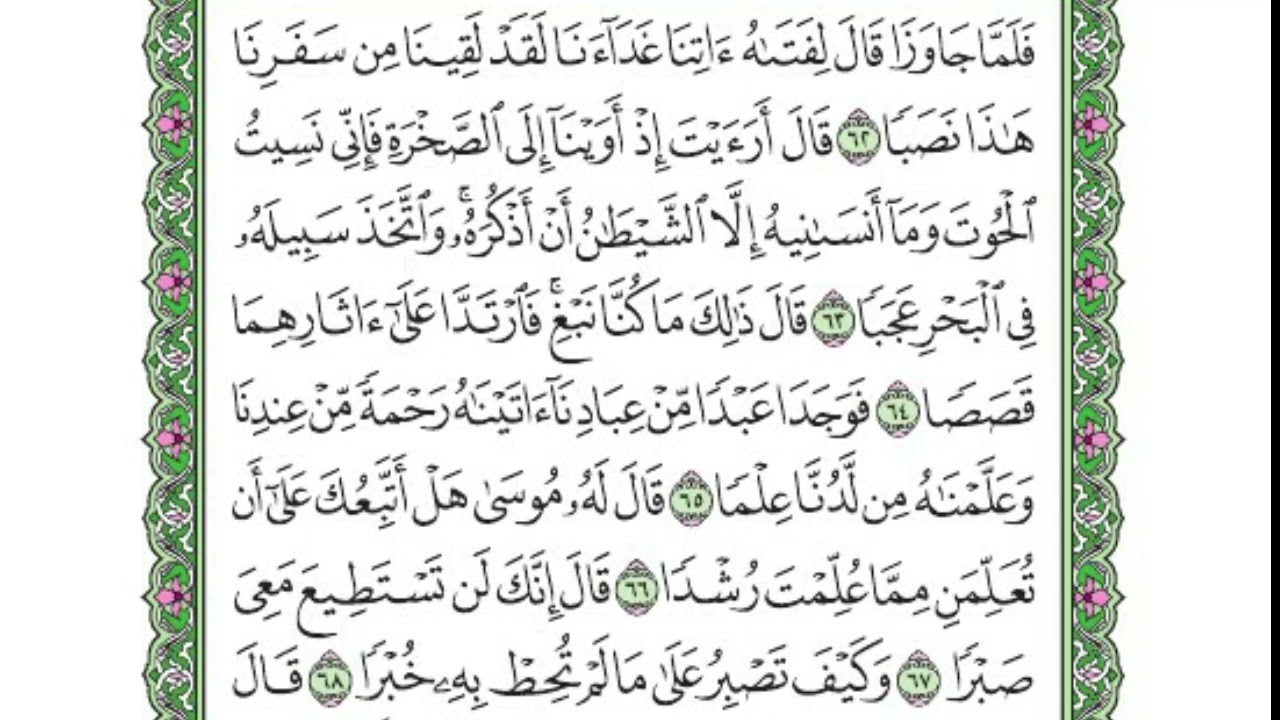 فَلَمَّا جَاوَزَا قَالَ لِفَتَىٰهُ ءَاتِنَا غَدَآءَنَا لَقَدْ لَقِينَا مِن سَفَرِنَا
هَٰذَا نَصَبًا ٦٢ قَالَ أَرَءَيْتَ إِذْ أَوَيْنَآ إِلَى ٱلصَّخْرَةِ فَإِنِّي نَسِيتُ
ٱلْحُوتَ وَمَآ أَنسَىٰنِيهُ إِلَّا ٱلشَّيْطَٰنُ أَنْ أَذْكُرَهُۥۚ وَٱتَّخَذَ سَبِيلَهُۥ
فِي ٱلْبَحْرِ عَجَبًا ٦٣ قَالَ ذَٰلِكَ مَا كُنَّا نَبْغِۚ فَٱرْتَدَّا عَلَىٰٓ ءَاثَارِهِمَا
قَصَصًا ٦٤ فَوَجَدَا عَبْدًا مِّنْ عِبَادِنَآ ءَاتَيْنَٰهُ رَحْمَةً مِّنْ عِندِنَا
وَعَلَّمْنَٰهُ مِن لَّدُنَّا عِلْمًا ٦٥ قَالَ لَهُۥ مُوسَىٰ هَلْ أَتَّبِعُكَ عَلَىٰٓ أَن
تُعَلِّمَنِ مِمَّا عُلِّمْتَ رُشْدًا ٦٦ قَالَ إِنَّكَ لَن تَسْتَطِيعَ مَعِىَ
صَبْرًا ٦٧ وَكَيْفَ تَصْبِرُ عَلَىٰ مَا لَمْ تُحِطْ بِهِۦ خُبْرًا ٦٨ قَالَ